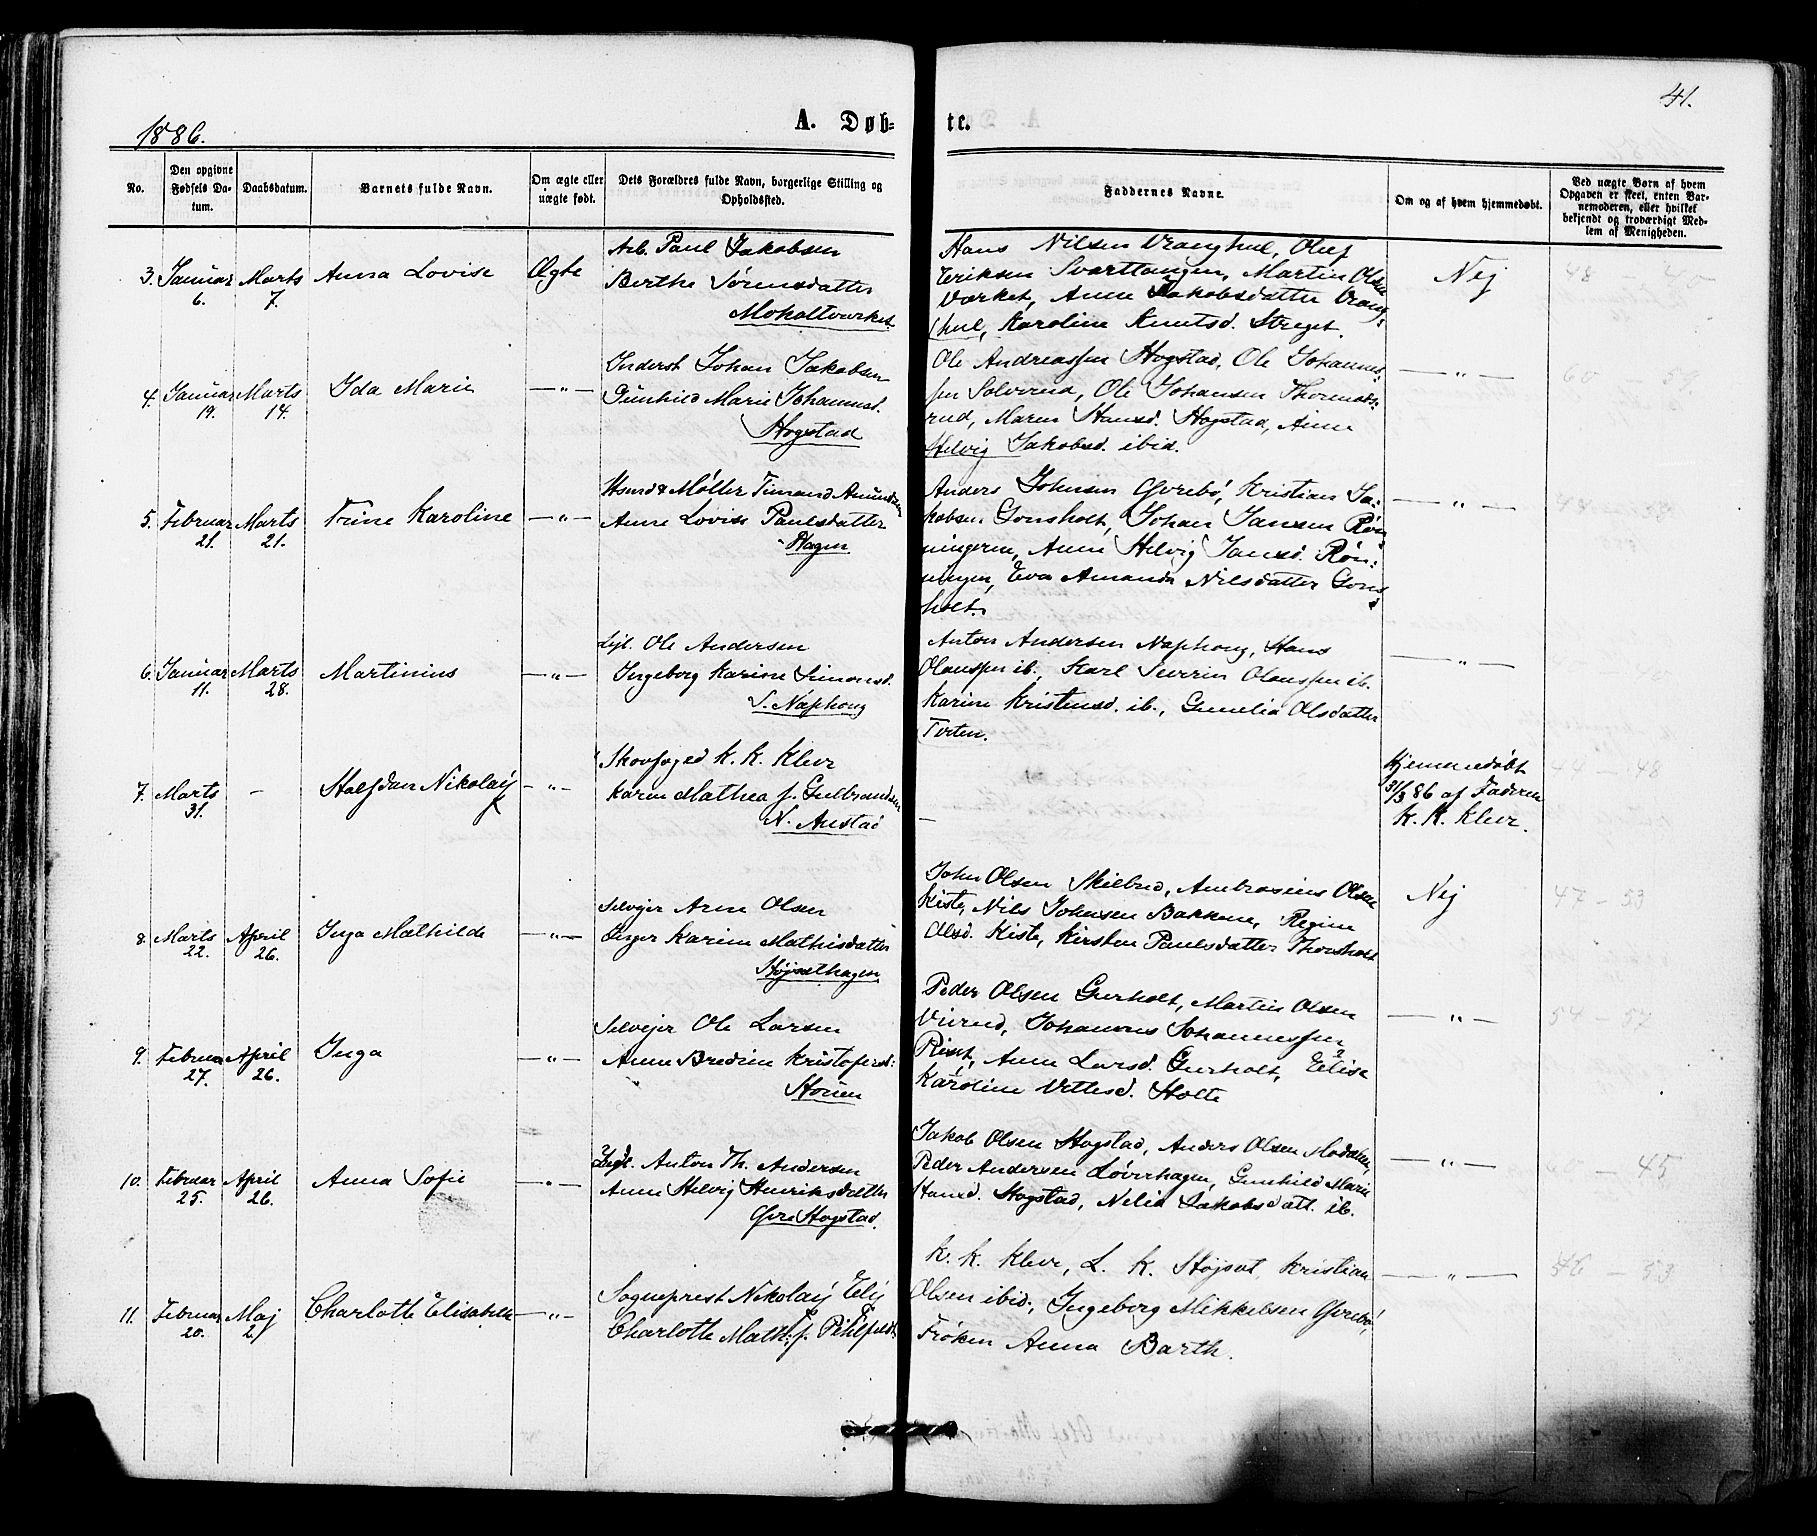 41.
1886.
A. Døbte.
No.
Den opgivne Fødsels Datum.
Daabsdatum.
Barnets fulde Navn.
Om ægte eller uægte født.
Dets Forældres fulde Navn, borgerlige Stilling og Opholdssted.
Faddernes Navne.
Om og af hvem hjemmedøbt.
Ved uægte Børn af hvem Opgaven er skeet, enten Barnemoderen, eller hvilket bekjendt og troværdigt Medlem af Menigheden.
3. Januar 6. Marts 7. Anna Lovise Ægte
Arb. Paul Jakobsen
Berthe Sørensdatter
Moholtværket
Hans Nilsen Vranghul, Oluf
Eriksen Svarttangen, Martin Olsen
Værket, Anne Jakobsdatter Vrang
hul, Karoline Knutsd. Streget.
Nej
48
4. Januar 19. Marts 14. Ida Marie — „ —
Inderst Johan Jakobsen
Gunhild Marie Johannesd.
Hogstad
Ole Andreassen Hogstad, Ole Johannes-
sen Solverud, Ole Johansen Thormods
rud, Maren Hansd. Hogstad, Anne
Helvig Jakobsd. ibid.
— „ —
60
5. Februar 21. Marts 21. Trine Karoline — „ —
Husmd & Møller Timand Amundsen
Anne Lovise Paulsdatter
Hagen
Anders Johnsen Øvrebø, Kristian Ja-
kobsen Gonsholt, Johan Jansen Røn
ningeren, Anne Helvig Jansd. Røn-
ningen, Eva Amanda Nilsdatter Gons
holt.
— „ —
6. Januar 11. Marts 28. Martinius — „ —
Lejl. Ole Andersen
Ingeborg Karine Simonsd.
S. Næphoug
Anton Andersen Næphoug, Hans
Olaussen ib. Karl Severin Olaussen ib.
Karine Kristensd. ib., Gunelia Olsdatter
Torten.
— „ —
7. Marts 31. - Halfdan Nikolaij — „ —
Skovfoged K. K. Kleve
Karen Mathea f. Gulbrandsen
N. Austad
—
Hjemmedøbt
31/3 86 af Faderen
K. K. Kleve.
44 48
8. Marts 22. April 26. Inga Mathilde — „ —
Selvejer Arne Olsen
Inger Karine Mathisdatter
Højsethagen
John Olsen Skilbred, Ambrosius Olsen
Kiste, Nils Johnsen Bakkene, Regine
Olsd. Kiste, Kirsten Paulsdatter Thorsholt
Nej
47 - 53
9. Februar 27. April 26. Inga — „ —
Selvejer Ole Larsen
Anne Bredine Kristofersd:
Storuen
Peder Olsen Gurholt, Martin Olsen
Virud, Johannes Johannessen
Rist, Anne Larsd. Gurholt, Elise
Karoline Vetlesd. Holte
— „ —
54 - 57
10. Februar 25. April 26. Anna Sofie — „ —
Lejl. Anton Th. Andersen
Anne Helvig Henriksdatter
Øvre Hogstad.
Jakob Olsen Hogstad, Anders Olsen Modalen,
Peder Andersen Løverhagen, Gunhild Marie
Hansd. Hogstad, Nelia Jakobsdatt. ib.
— „ —
- 45
11. Februar 20. Maj 2. Charlotte Elisabeth — „ —
Sogneprest Nikolaij Elij
Charlotte Math: f. Pihlfeldt
K. K. Kleve, L. K. Højset, Kristian
Olsen ibid., Ingeborg Mikkelsen Øvrebø,
Frøken Anna Barth.
— „ —
46 53